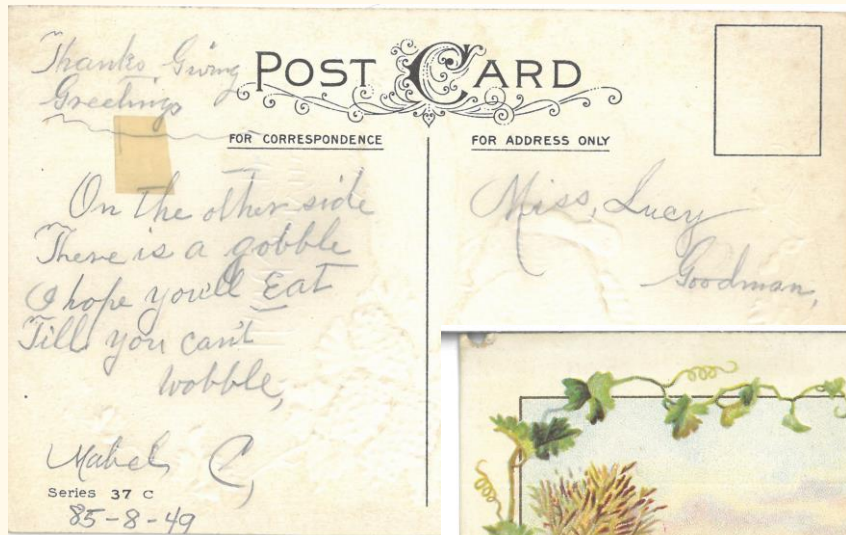 Thanks Giving
Greetings
POST CARD
FOR CORRESPONDENCE
FOR ADDRESS ONLY
On the other side
There is a gobble
I hope you'll Eat
Till you can't
wobble,
Mabel C,
Series 37 C
85-8-49
Miss, Lucy
Goodman,